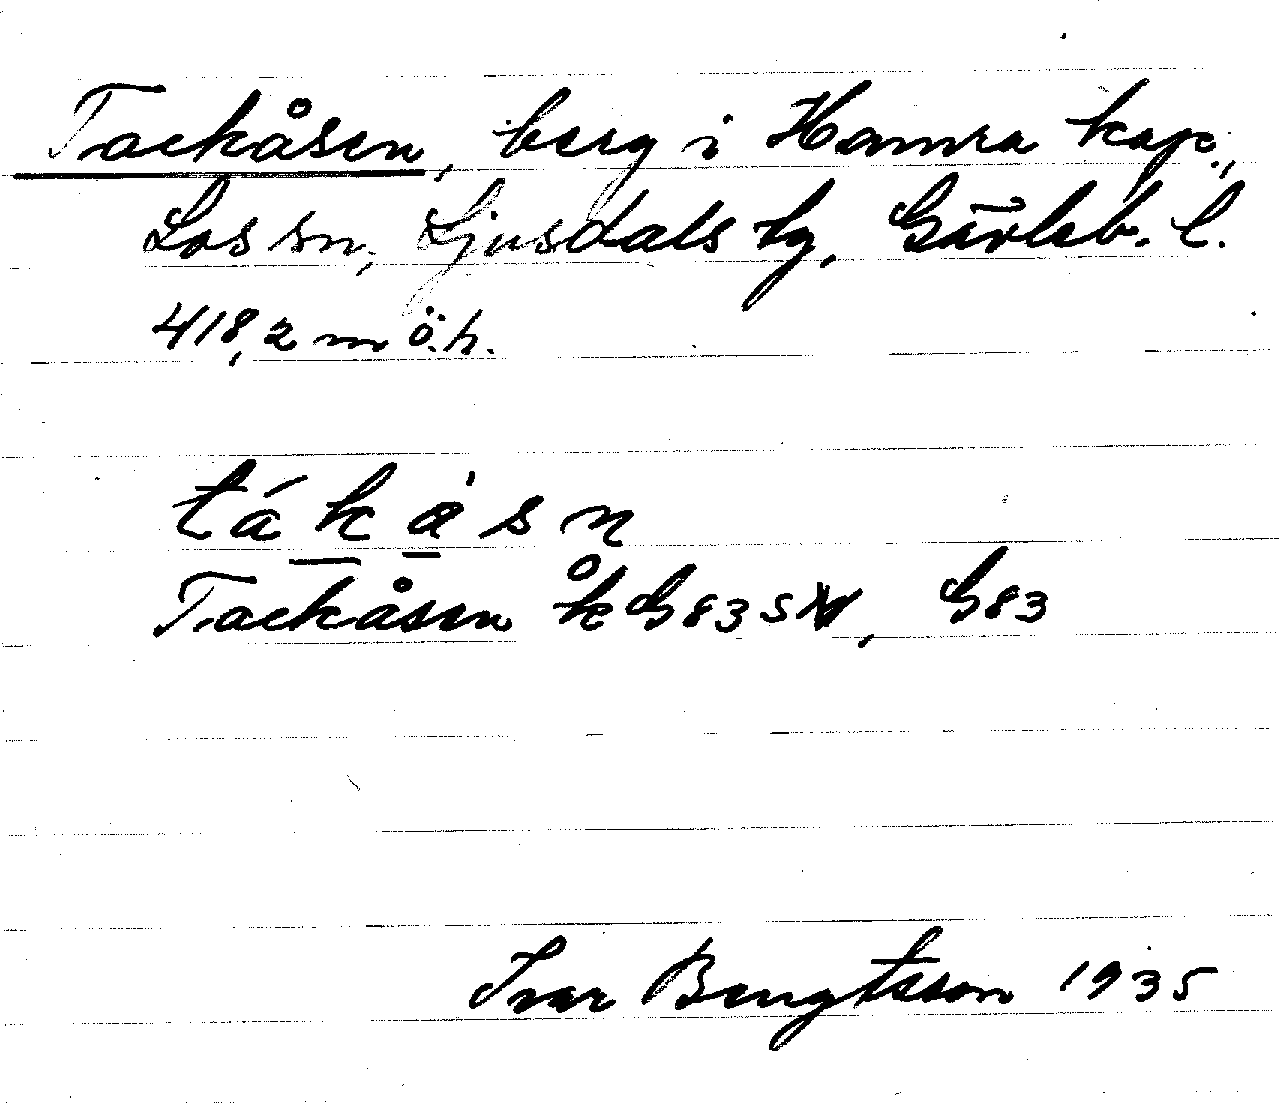 Tackåsen, berg i Hamra kap.,
Los sn, Ljusdals tg, Gävleb. l.
418,2 m ö.h.
tákåsn
Tackåsen åk G83SV, G83
Ivar Bengtsson 1935